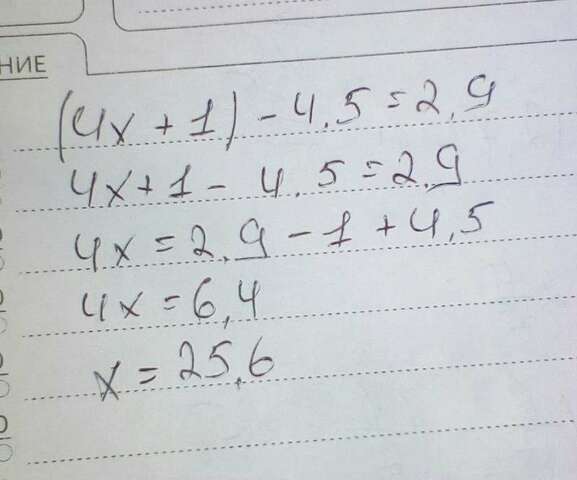 НИЕ
(4x + 1) - 4,5 = 2,9
4x + 1 - 4,5 = 2,9
4x = 2,9 - 1 + 4,5
4x = 6,4
x = 25,6